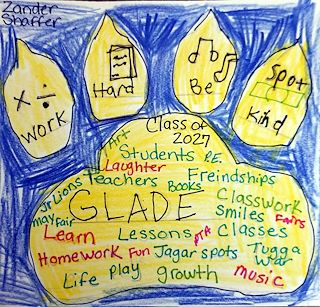 Zander
Shaffer
× ÷
Work
Hard
Be
Spot
Kind
Class of
2027
Art
Students P.E.
Laughter
Teachers
Freindships
Jr Lions
Books
Classwork
May Fair
GLADE
smiles
Fairs
Learn
Lessons
PTA
Classes
Homework
Fun
Jagar spots
Tugga
War
Life
Play
growth
music